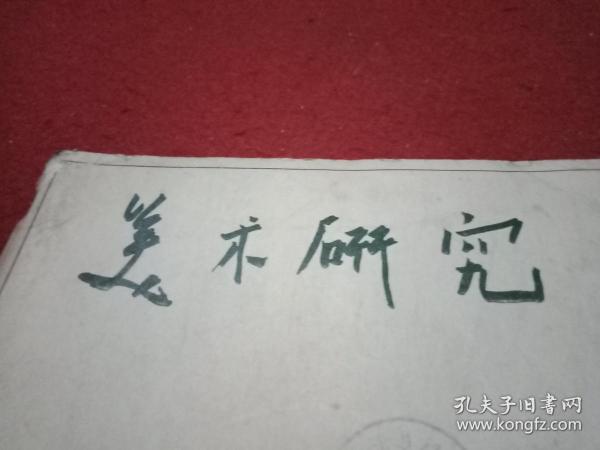 美术研究
孔夫子旧书网
www.kongfz.com